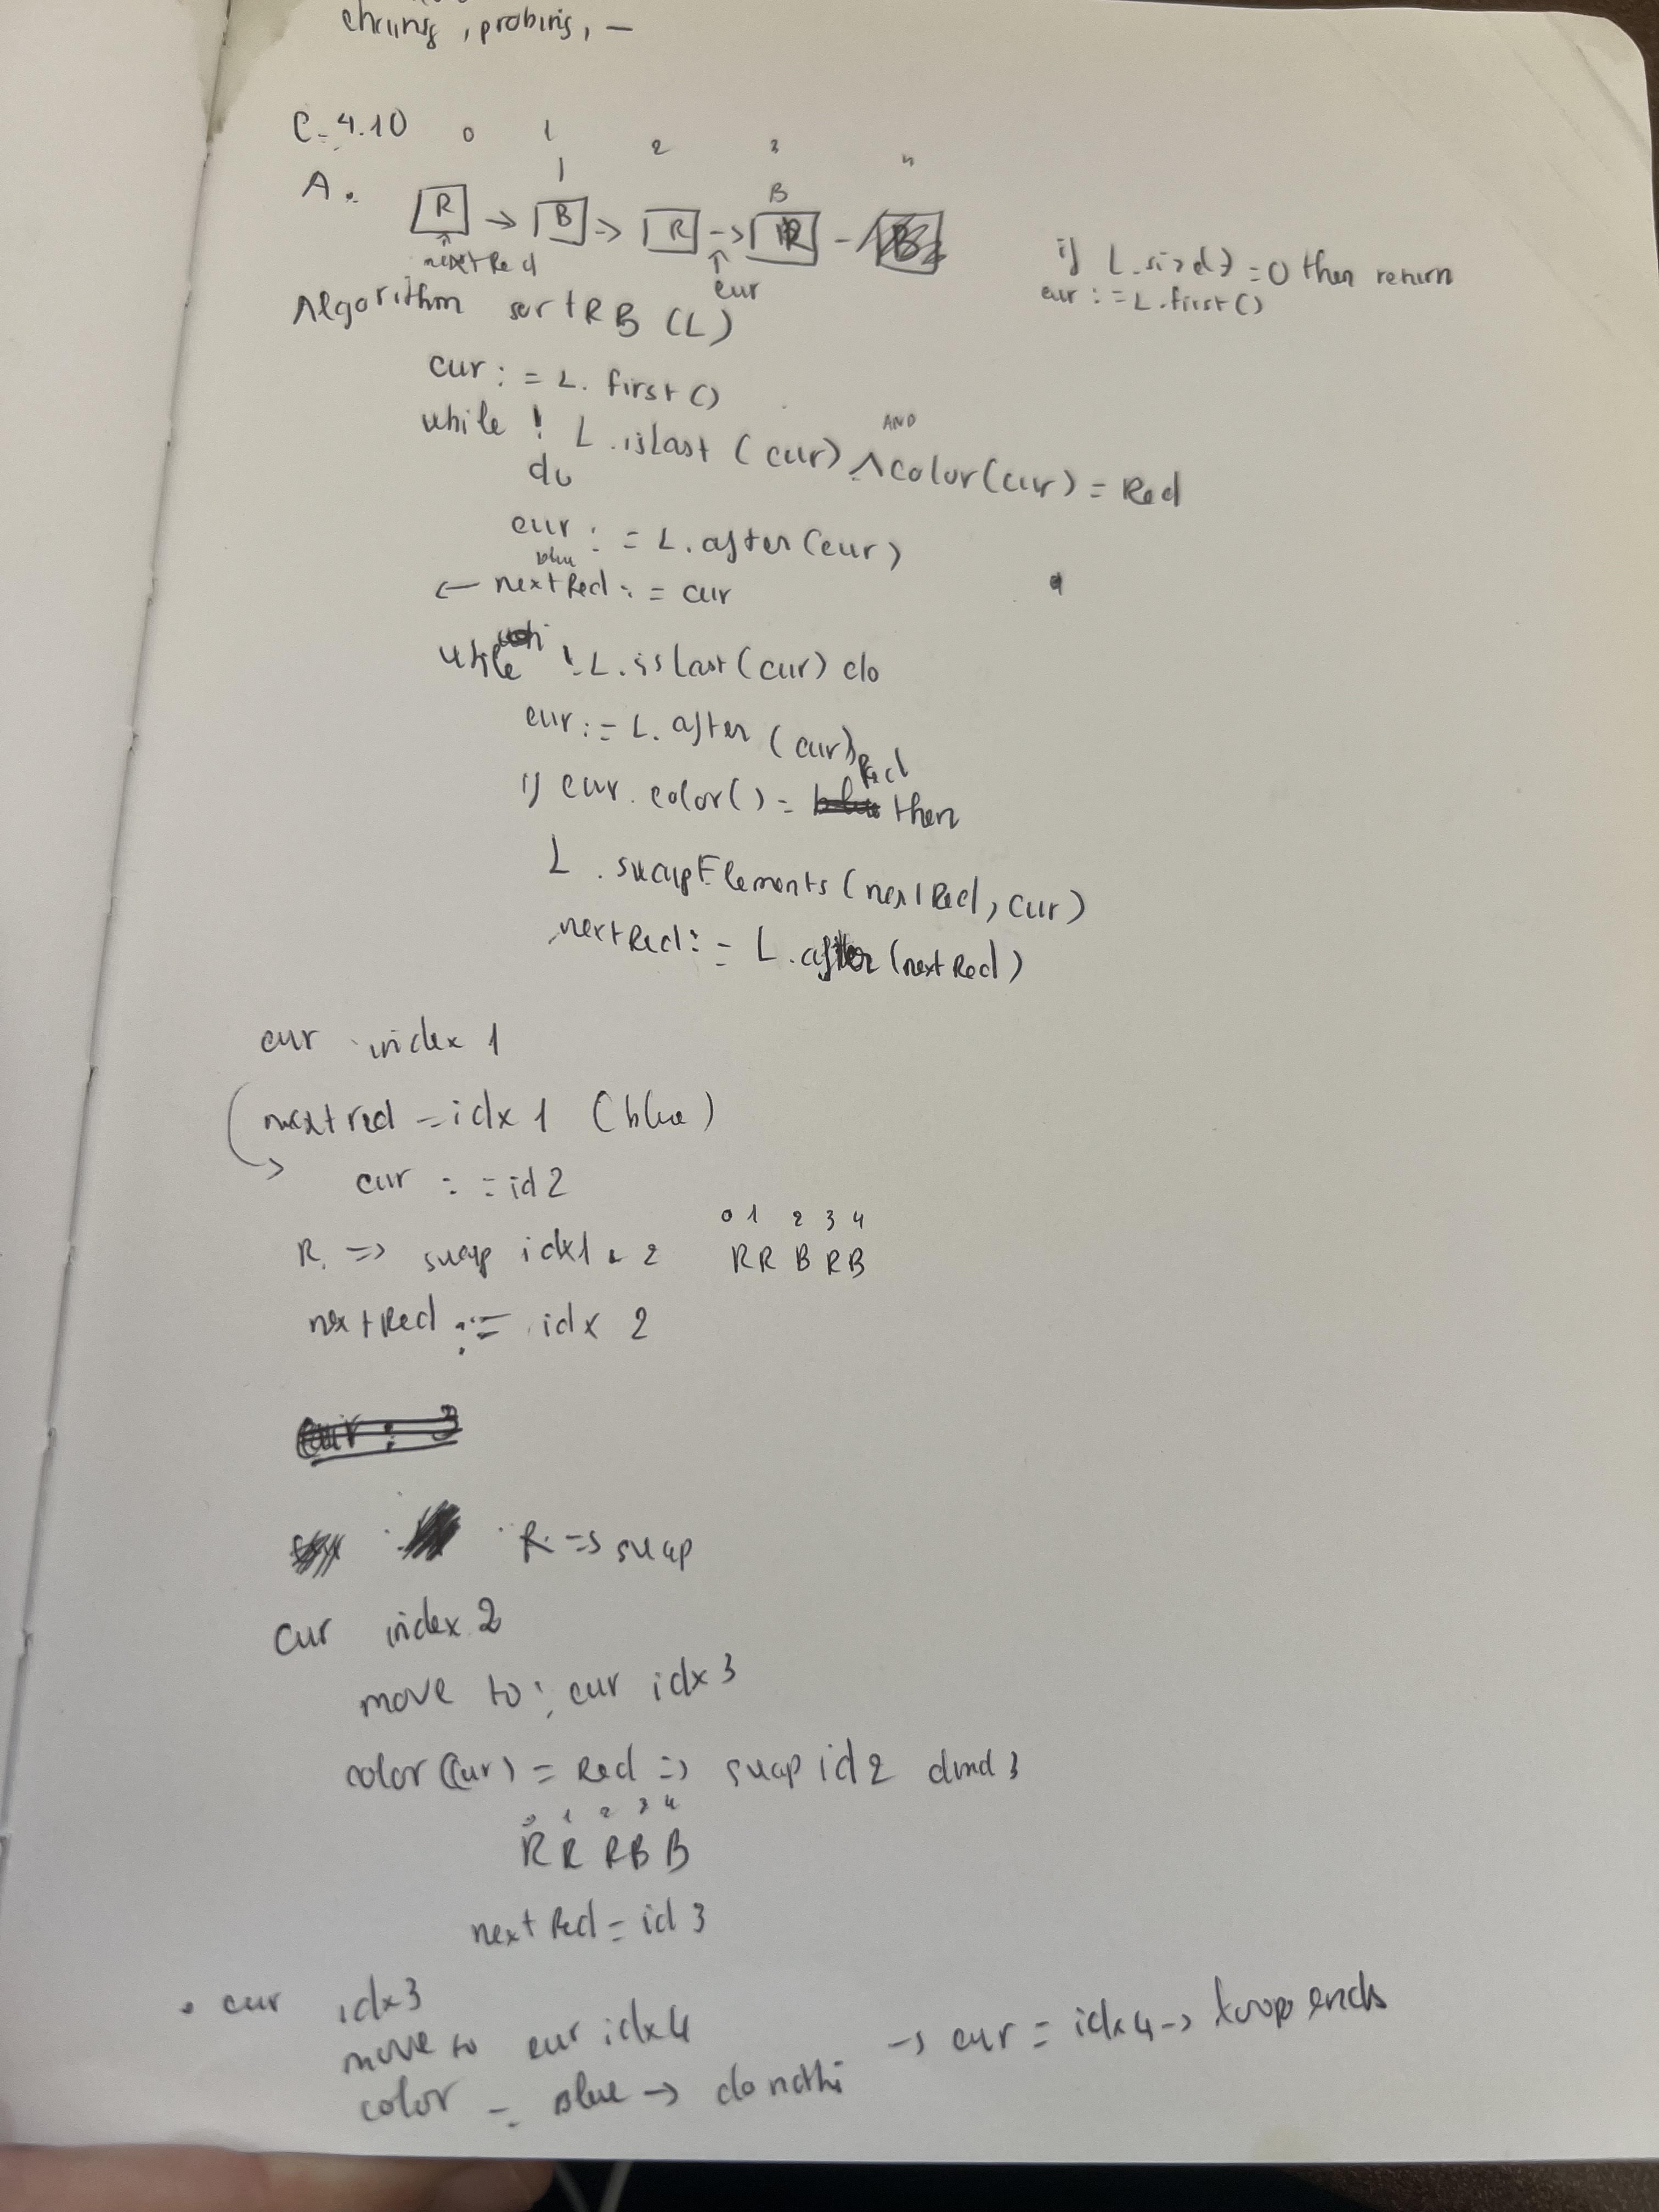 chaining, probing, –
C-4.10 0 1 2 3 4
A. R → B → R → R – B
nextRed cur
if L.size() = 0 then return
cur := L.first()
Algorithm sortRB (L)
cur := L. first()
while ! L.isLast (cur) ∧ color(cur) = Red
AND
do
cur := L.after(cur)
blue
← nextRed := cur
while ! L.isLast(cur) do
cur := L. after (cur)
if cur. color() = Red then
L .swapElements (nextRed, cur)
nextRed := L.after (nextRed)
cur index 1
nextred = idx 1 (blue)
cur := id 2
0 1 2 3 4
R. => swap idx1 & 2 R R B R B
nextRed := idx 2
cur : 3
R => swap
cur index 2
move to: cur idx 3
color (cur) = Red => swap id 2 and 3
0 1 2 3 4
R R R B B
nextRed = id 3
• cur idx3
move to cur idx4
color = Blue → do nothi → cur = idx 4 → loop ends